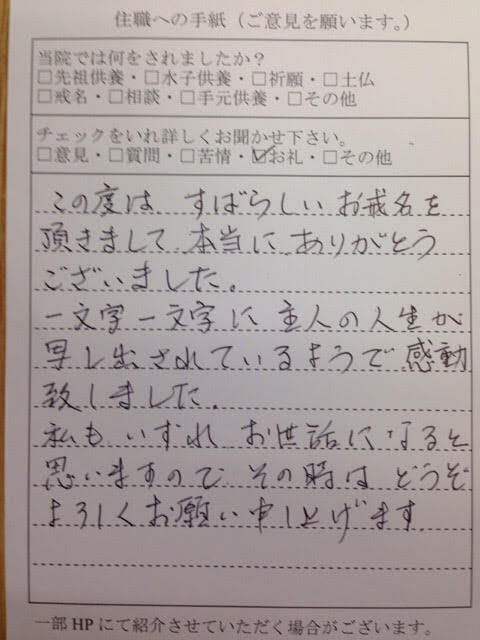 住職への手紙（ご意見を願います。）
当院では何をされましたか？
□先祖供養・□水子供養・□祈願・□土仏
□戒名・□相談・□手元供養・□その他
チェックをいれ詳しくお聞かせ下さい。
□意見・□質問・□苦情・☑お礼・□その他
この度は すばらしい お戒名を
頂きまして 本当に ありがとう
ございました。
一文字一文字に 主人の人生が
写し出されているようで 感動
致しました。
私も いずれ お世話に なると
思いますので その時は どうぞ
よろしくお願い申し上げます
一部 HP にて紹介させていただく場合がございます。